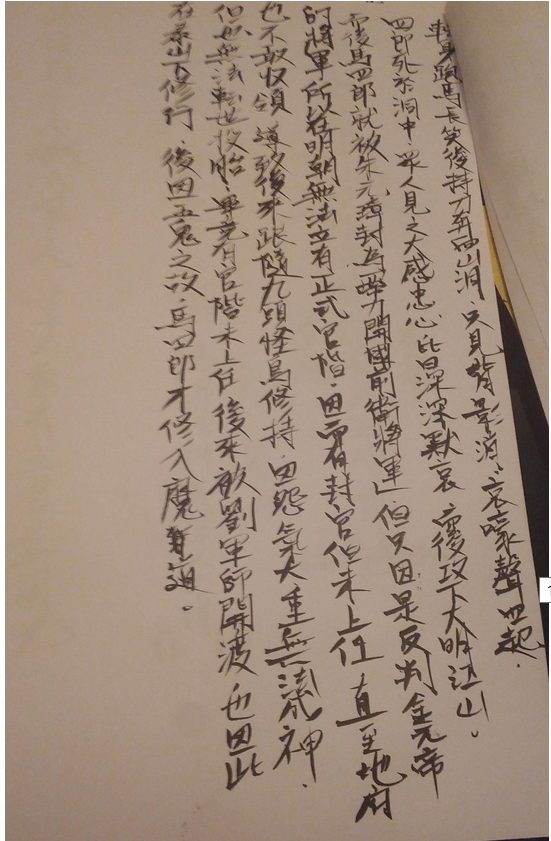 轉身跑馬長笑後持刀奔四山洞，只見背影消，哀嚎聲四起．
四郎死於洞中，眾人見之大感忠心比日深深默哀，而後攻下大明江山。
而後馬四郎就被朱元璋封為「 力開國前衛將軍」但只因是反判金元帝
的將軍所以在明朝無法立有正式官階．因而有封官但未上任，直至地府
也不敢收領，導致後來跟隨九頭怪鳥修持，因怨氣太重無法 神．
但也無法轉世投胎，畢竟有官階未上任，後來被劉軍師開渡也因此
在 山下修行．後因五鬼之故，馬四郎才修入魔 道。